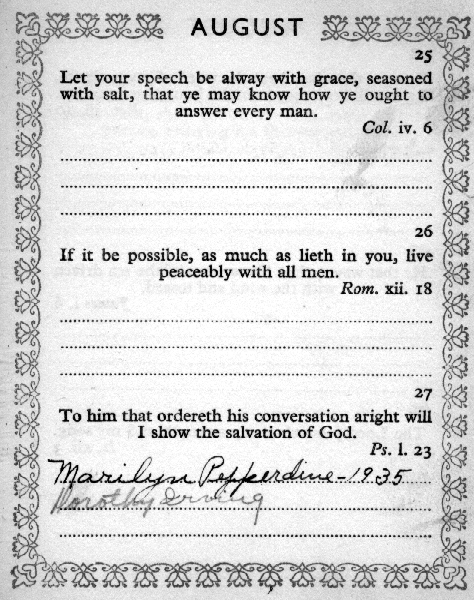 AUGUST
25
Let your speech be alway with grace, seasoned
with salt, that ye may know how ye ought to
answer every man.
Col. iv. 6
26
If it be possible, as much as lieth in you, live
peaceably with all men.
Rom. xii. 18
27
To him that ordereth his conversation aright will
I show the salvation of God.
Ps. l. 23
Marilyn Pepperdine-1935
Dorothy Irving